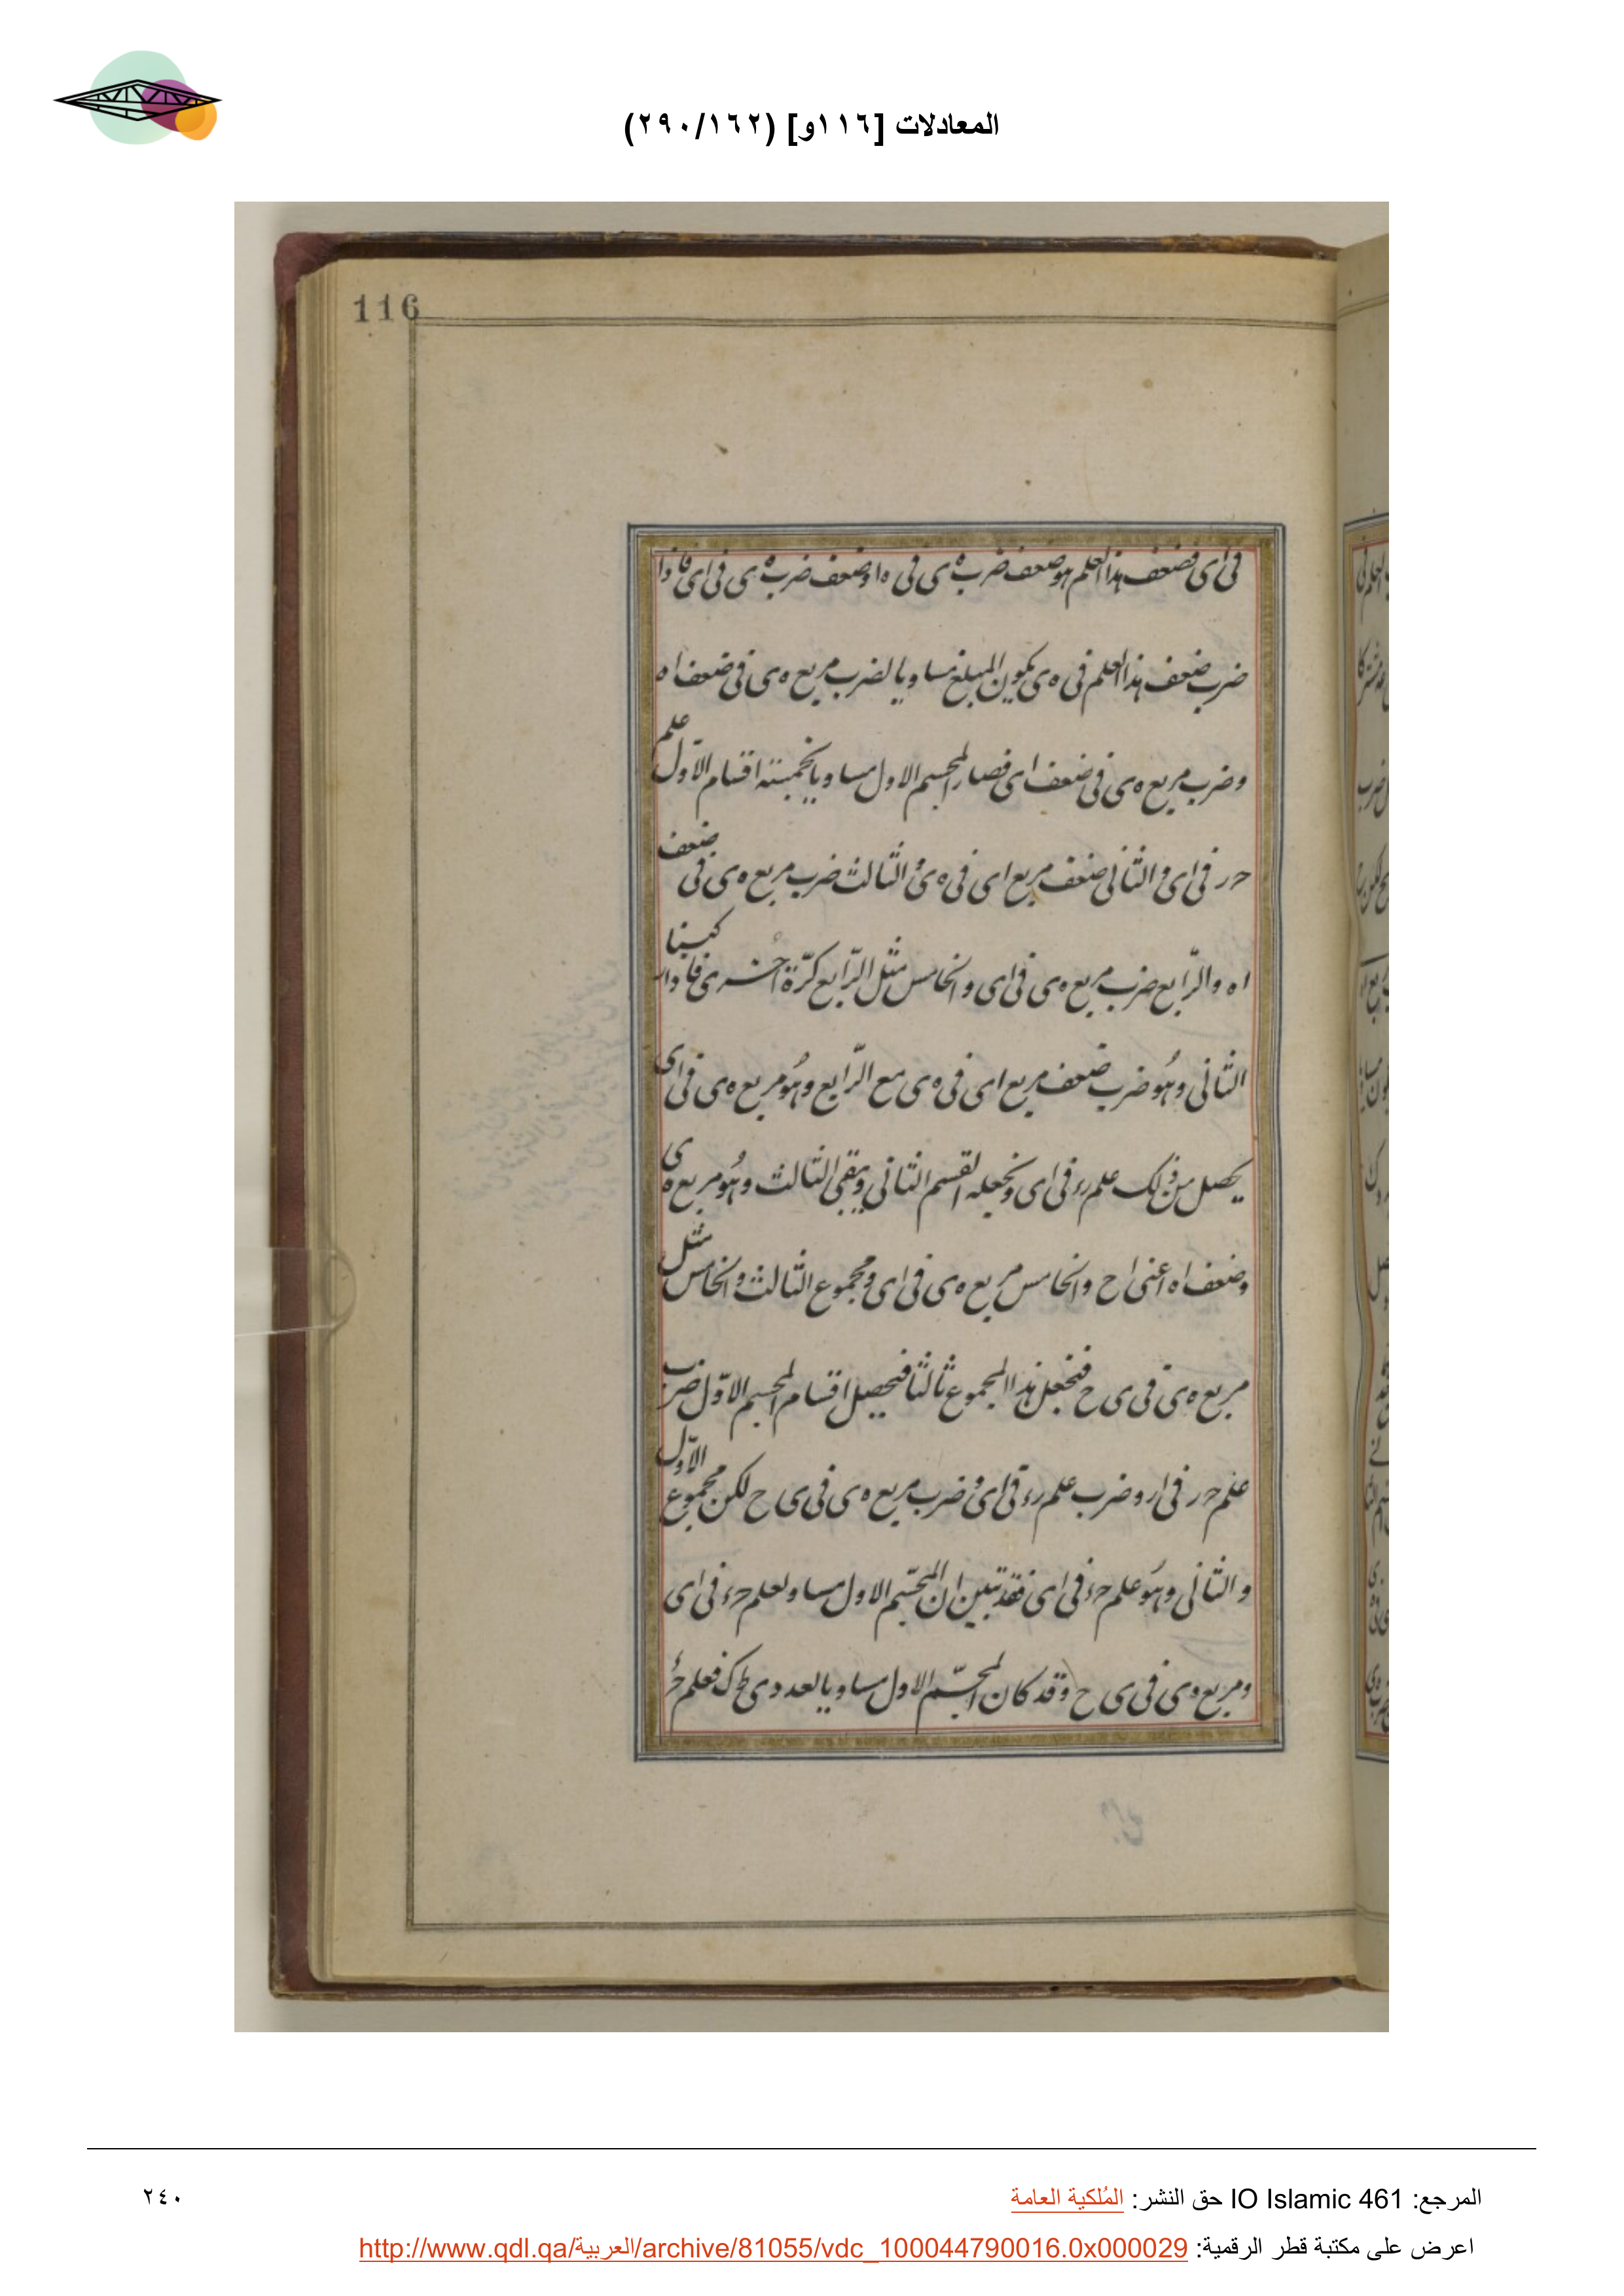 المعادلات [١١٦و] (٢٩٠/١٦٢)
116
فى اى فضعف هذا العلم هو ضعف ضرب ه ى فى ه ا وضعف ضرب ه ى فى اى فاذا
ضرب ضعف هذا العلم فى ه ى يكون المبلغ مساويا لضرب مربع ه ى فى ضعف اه
وضرب مربع ه ى فى ضعف اى فصار المجسم الاول مساويا لخمسة اقسام الاوّل علم
حر فى اى والثانى ضعف مربع اى فى ه ى والثالث ضرب مربع ه ى فى ضعف
اه والرّابع ضرب مربع ه ى فى اى والخامس مثل الرّابع كرّة اخرى فاذا ركبنا
الثانى وهُو ضرب ضعف مربع اى فى ه ى مع الرّابع وهُو مربع ه ى فى اى
يحصل من ذلك علم رء فى اى ونجعله القسم الثانى ويبقى الثالث وهُو مربع ه ى
وضعف اه اعنى اح والخامس مربع ه ى فى اى ومجموع الثالث والخامس مثل
مربع ه ى فى ى ح فنجعل هذا المجموع ثالثا فيحصل اقسام المجسم الاوّل ضرب
علم حر فى ار وضرب علم رء فى اى وضرب مربع ه ى فى ى ح لكن مجموع الاوّل
والثانى وهُو علم حء فى اى فقد تبين ان المجسّم الاول مساو لعلم حء فى اى
ومربع ه ى فى ى ح وقد كان المجسّم الاول مساويا لعدد ى ط ك فعلم حء
المرجع: IO Islamic 461 حق النشر: المُلكية العامة
٢٤٠
اعرض على مكتبة قطر الرقمية: http://www.qdl.qa/العربية/archive/81055/vdc_100044790016.0x000029